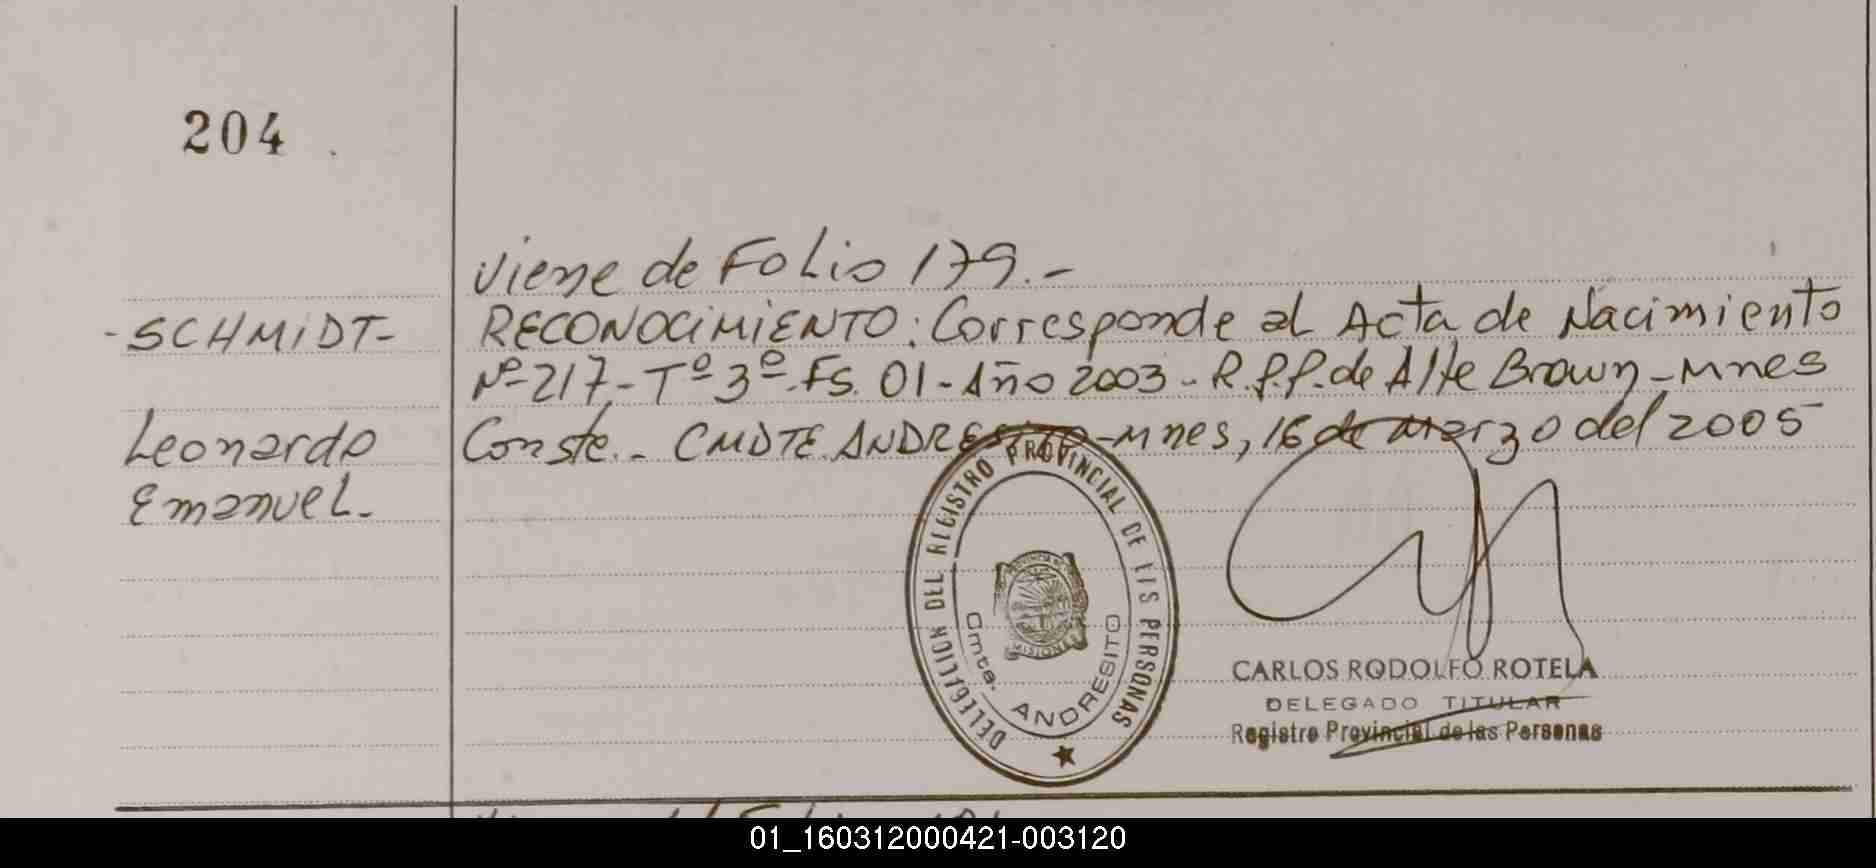 204
Viene de Folio 179.-
-SCHMIDT-
RECONOCIMIENTO: Corresponde al Acta de Nacimiento
Nº-217.-Tº 3º.Fs. 01-Año 2003-R.P.P. de Alte Brown-Mnes
Leonardo
Conste.- CMDTE. ANDRESITO-Mnes, 16 de Marzo del 2005
Emanuel.-
DELEGACION DEL REGISTRO PROVINCIAL DE LAS PERSONAS
Cmte. ANDRESITO
MISIONES
CARLOS RODOLFO ROTELA
DELEGADO TITULAR
Registro Provincial de las Personas
01_160312000421-003120